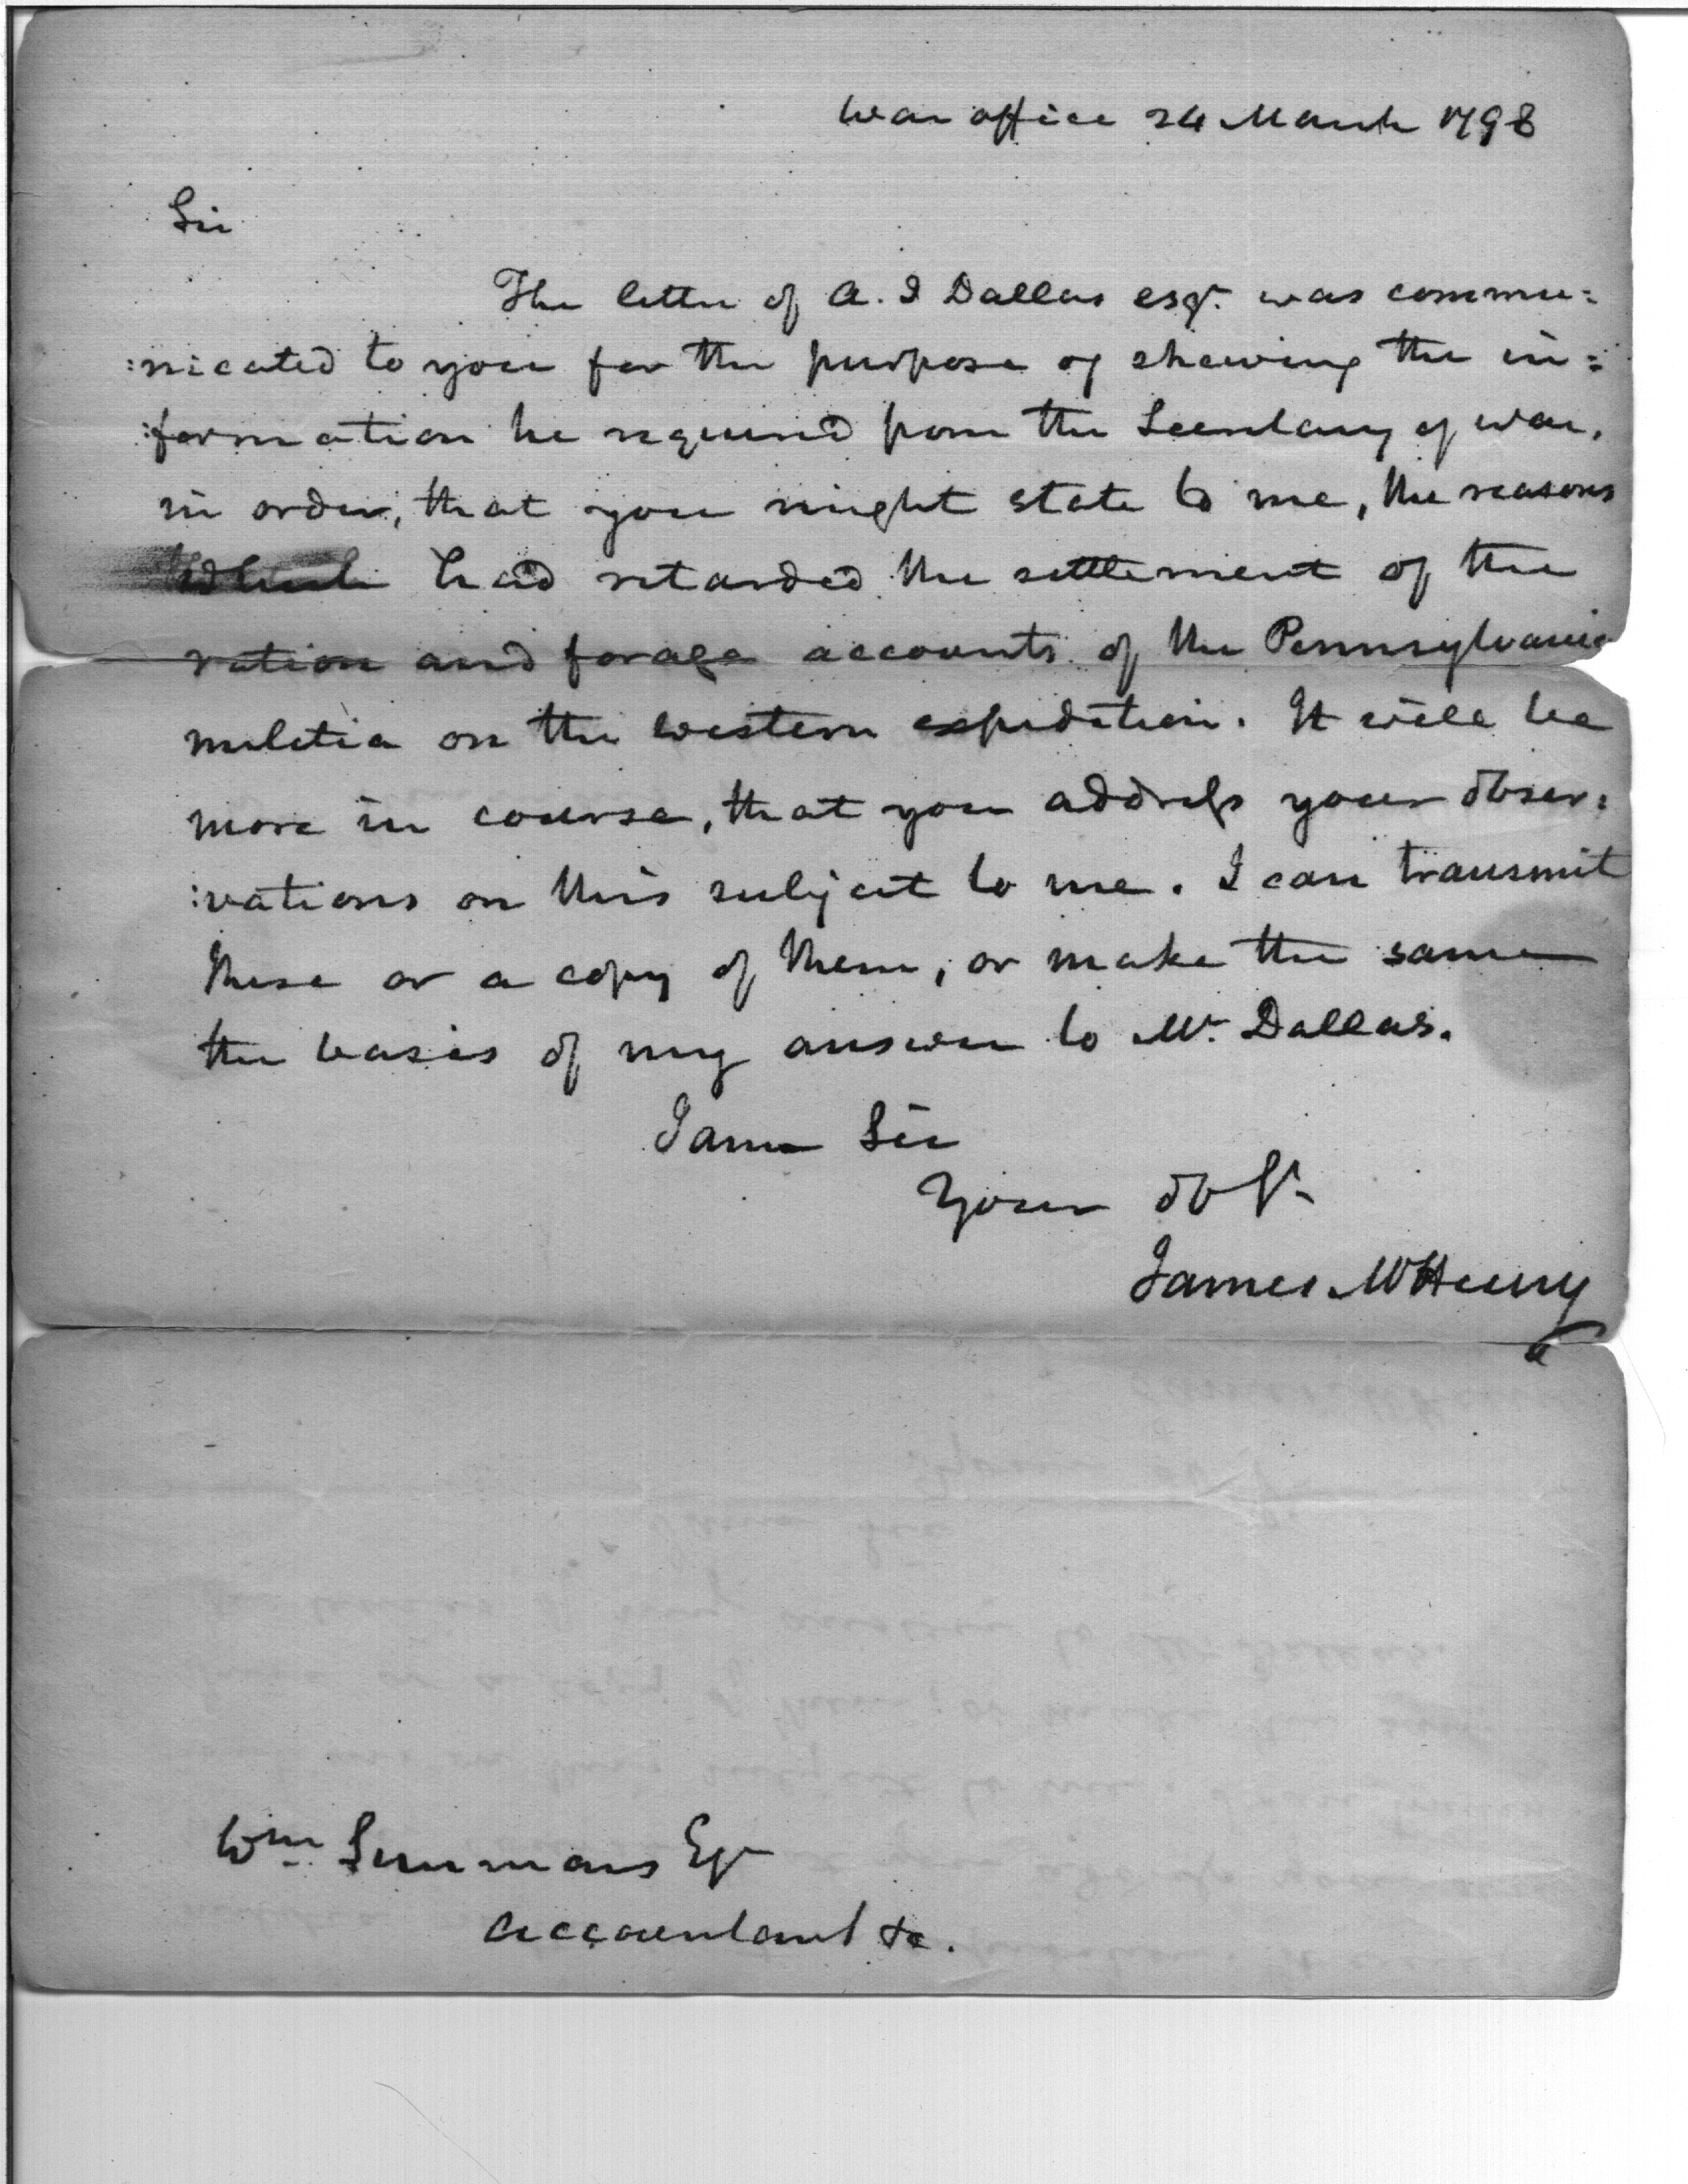 War office 24 March 1798
Sir
The letter of A. I Dallas esqr. was commu=
:nicated to you for the purpose of shewing the in=
:formation he required from the Secretary of war,
in order, that you might state to me, the reasons
which had retarded the settlement of the
ration and forage accounts of the Pennsylvania
militia on the western expedition. It will be
more in course, that you address your obser:
:vations on this subject to me. I can transmit
these or a copy of them, or make the same
the basis of my answer to Mr. Dallas.
I am Sir
Your ob St
James McHenry
Wm Simmons Esqr
Accountant &c.